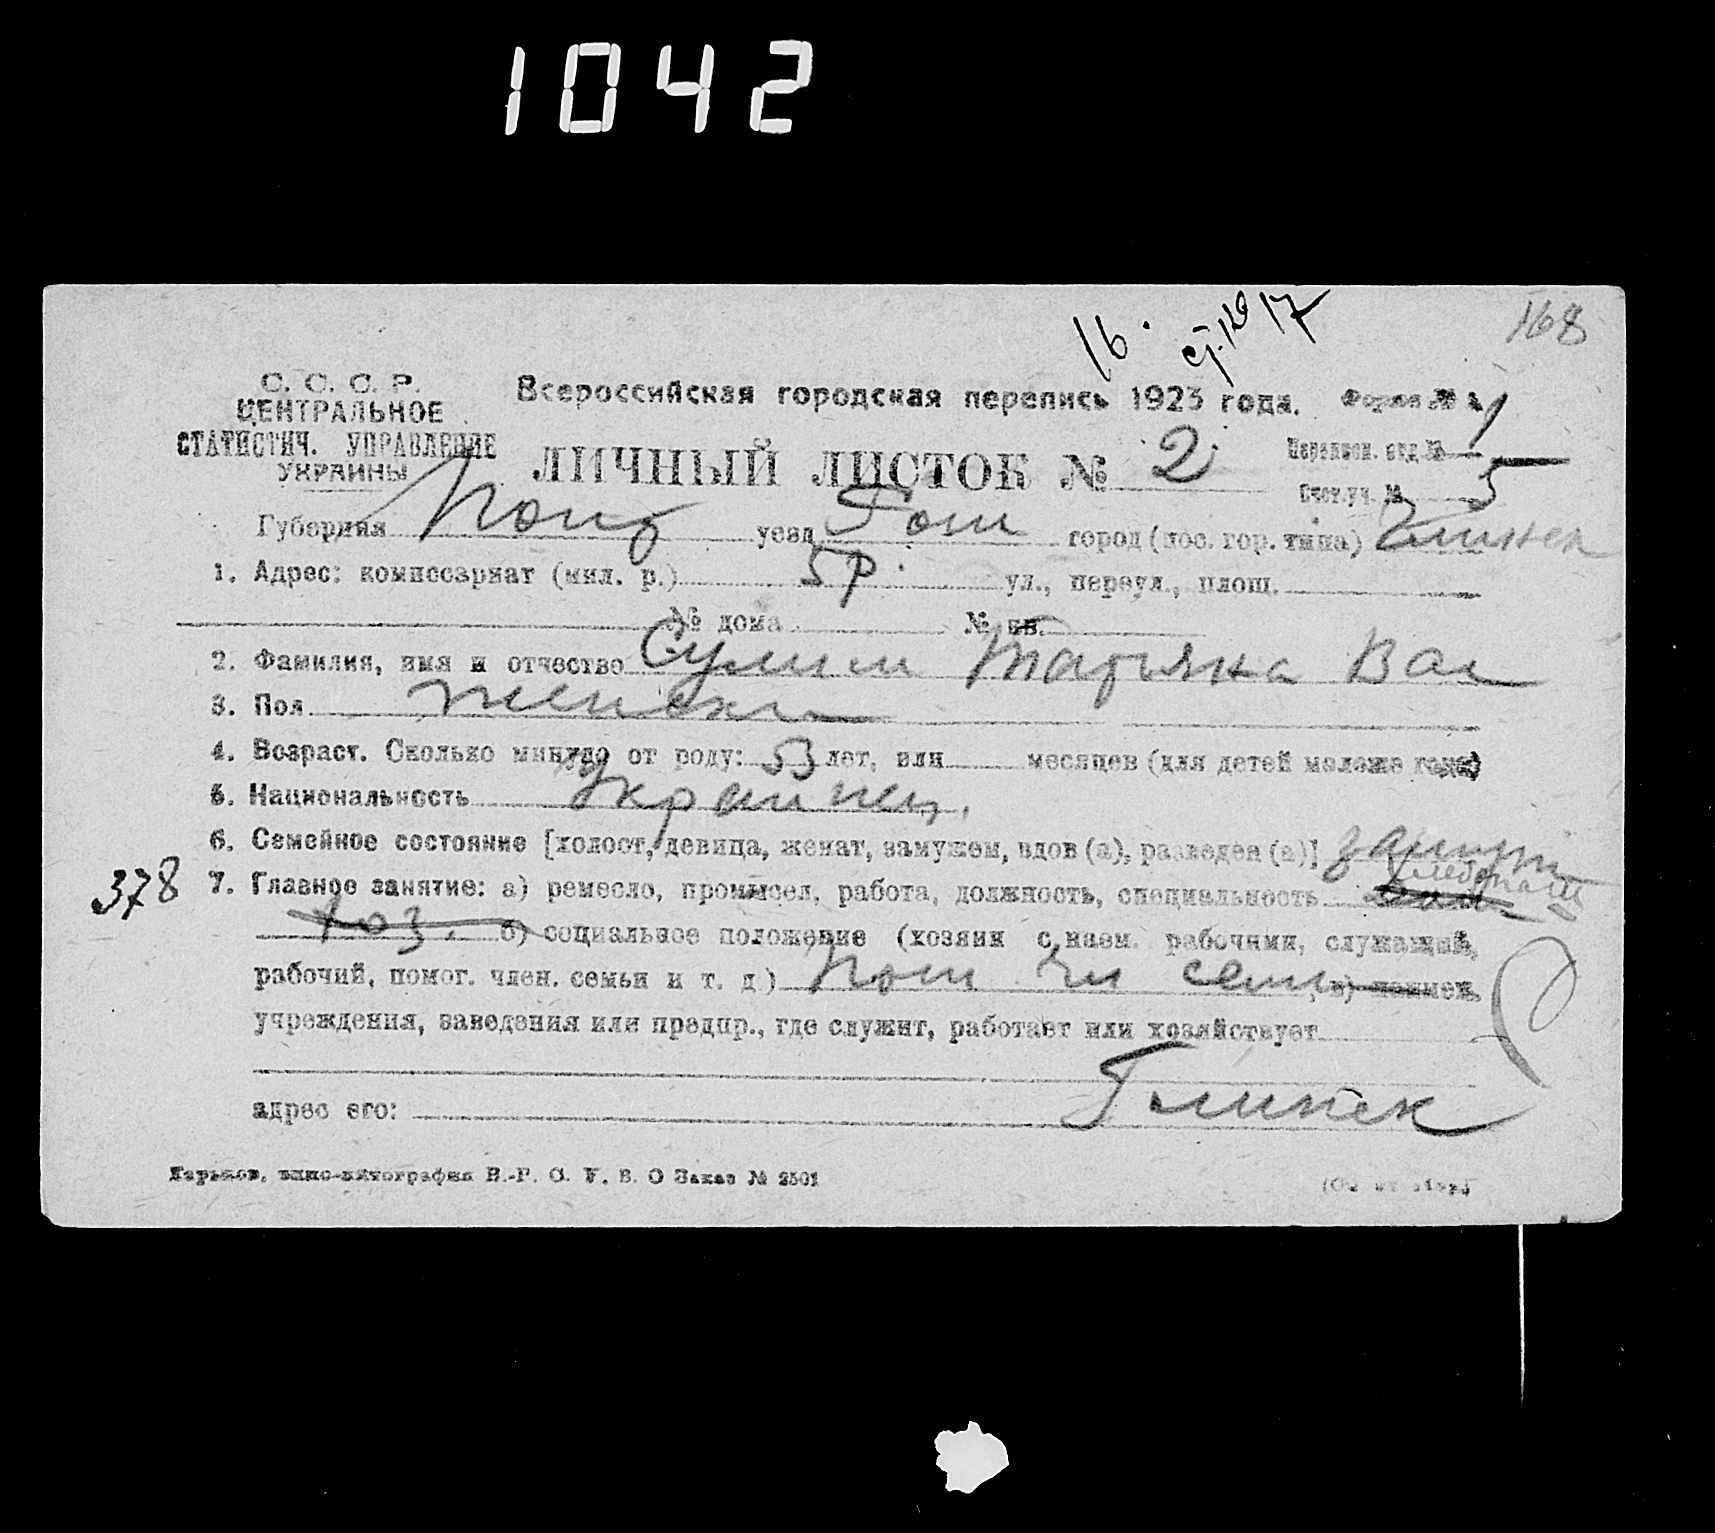 1042
168
16. ст. 129 17
С. С. С. Р.
ЦЕНТРАЛЬНОЕ
СТАТИСТИЧ. УПРАВЛЕНИЕ
УКРАИНЫ
Всероссийская городская перепись 1923 года. Форма №
ЛИЧНЫЙ ЛИСТОК № 2 Переписн. отд. № 1
Счет. уч. № 5
Губерния Полт уезд город (пос. гор. типа) Глинск
1. Адрес: комиссариат (мил. р.) 5 р. ул., переул., площ.
№ дома № кв.
2. Фамилия, имя и отчество Сулим Татьяна Вас
3. Пол женски
4. Возраст. Сколько минуло от роду: 53 лет, или месяцев (для детей моложе года)
5. Национальность Украинец.
6. Семейное состояние [холост, девица, женат, замужем, вдов (а), разведен (а)] замуж
378 7. Главное занятие: а) ремесло, промысел, работа, должность, специальность хлебопаш
хоз. б) социальное положение (хозяин с наем. рабочими, служащий,
рабочий, помог. член. семьи и т. д.) пом чл семи, в) наимен.
учреждения, заведения или предпр., где служит, работает или хозяйствует
адрес его: Глинск
Харьков, типо-литография В.-Р. С. У. В. О Заказ № 2501